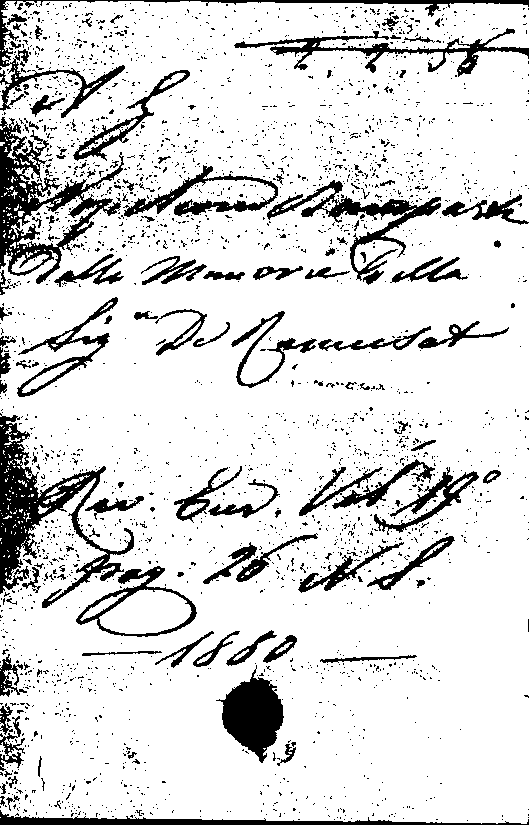 2. 2. 56
N. Z
Napoleone Bonaparte
Dalle Memorie della
Sigª De Remusat
Riv. Eur. Vol. 19º
pag. 26 N. S.
— 1880 —